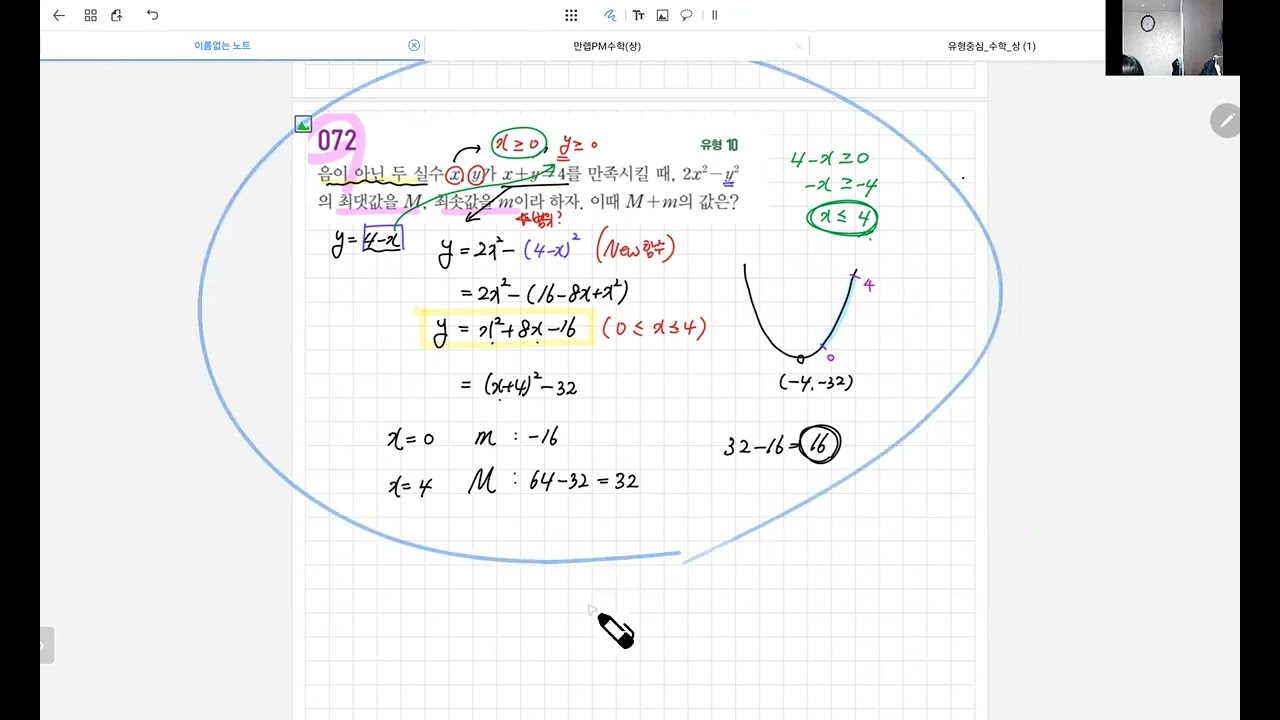 이름없는 노트
만렙PM수학(상)
유형중심_수학_상 (1)
072
x ≥ 0, y ≥ 0
유형 10
음이 아닌 두 실수 x, y가 x+y=4를 만족시킬 때, 2x²-y²
의 최댓값을 M, 최솟값을 m이라 하자. 이때 M+m의 값은?
범위?
y = 4-x
y = 2x² - (4-x)² (New 함수)
= 2x² - (16-8x+x²)
y = x²+8x-16 (0 ≤ x ≤ 4)
= (x+4)² -32
x=0 m : -16
x=4 M : 64-32 = 32
4-x ≥ 0
-x ≥ -4
x ≤ 4
4
0
(-4, -32)
32-16=16